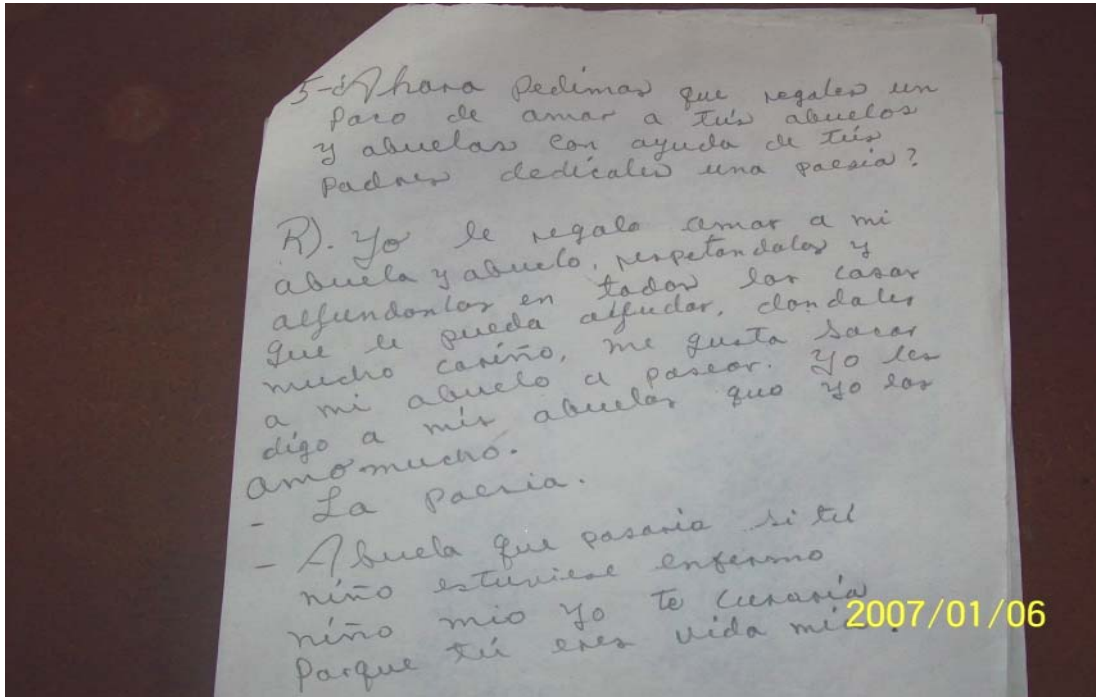 5-¿Ahora Pedimos que regales un
Paro de amar a tús abuelos
y abuelas con ayuda de tús
Padres dedícales una poesia?
R). Yo le regalo amar a mi
abuela y abuelo, respetandolos y
allundonlos en todos los casos
que le pueda alludar, dandoles
mucho cariño, me gusta sacar
a mi abuelo a pasear. Yo les
digo a mis abuelos que yo los
amo mucho.
- La Poesia.
- Abuela que pasaria si tú
niño estuviese enfermo
niño mio yo te curaría
Porque tú eres vida mia.
2007/01/06